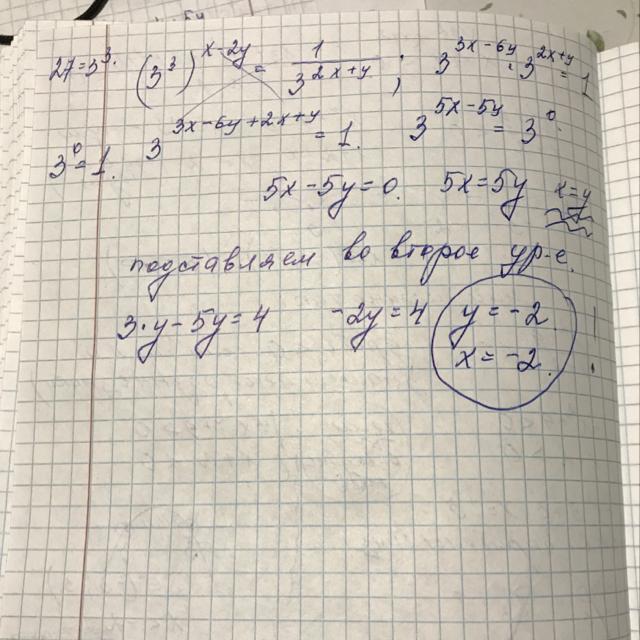 27=3³. (3³)^(x-2y) = 1/3^(2x+y) ; 3^(3x-6y) · 3^(2x+y) = 1
3⁰=1. 3^(3x-6y+2x+y) = 1. 3^(5x-5y) = 3⁰.
5x-5y=0. 5x=5y x=y
подставляем во второе ур-е.
3·y-5y=4 -2y=4 y=-2.
x=-2.